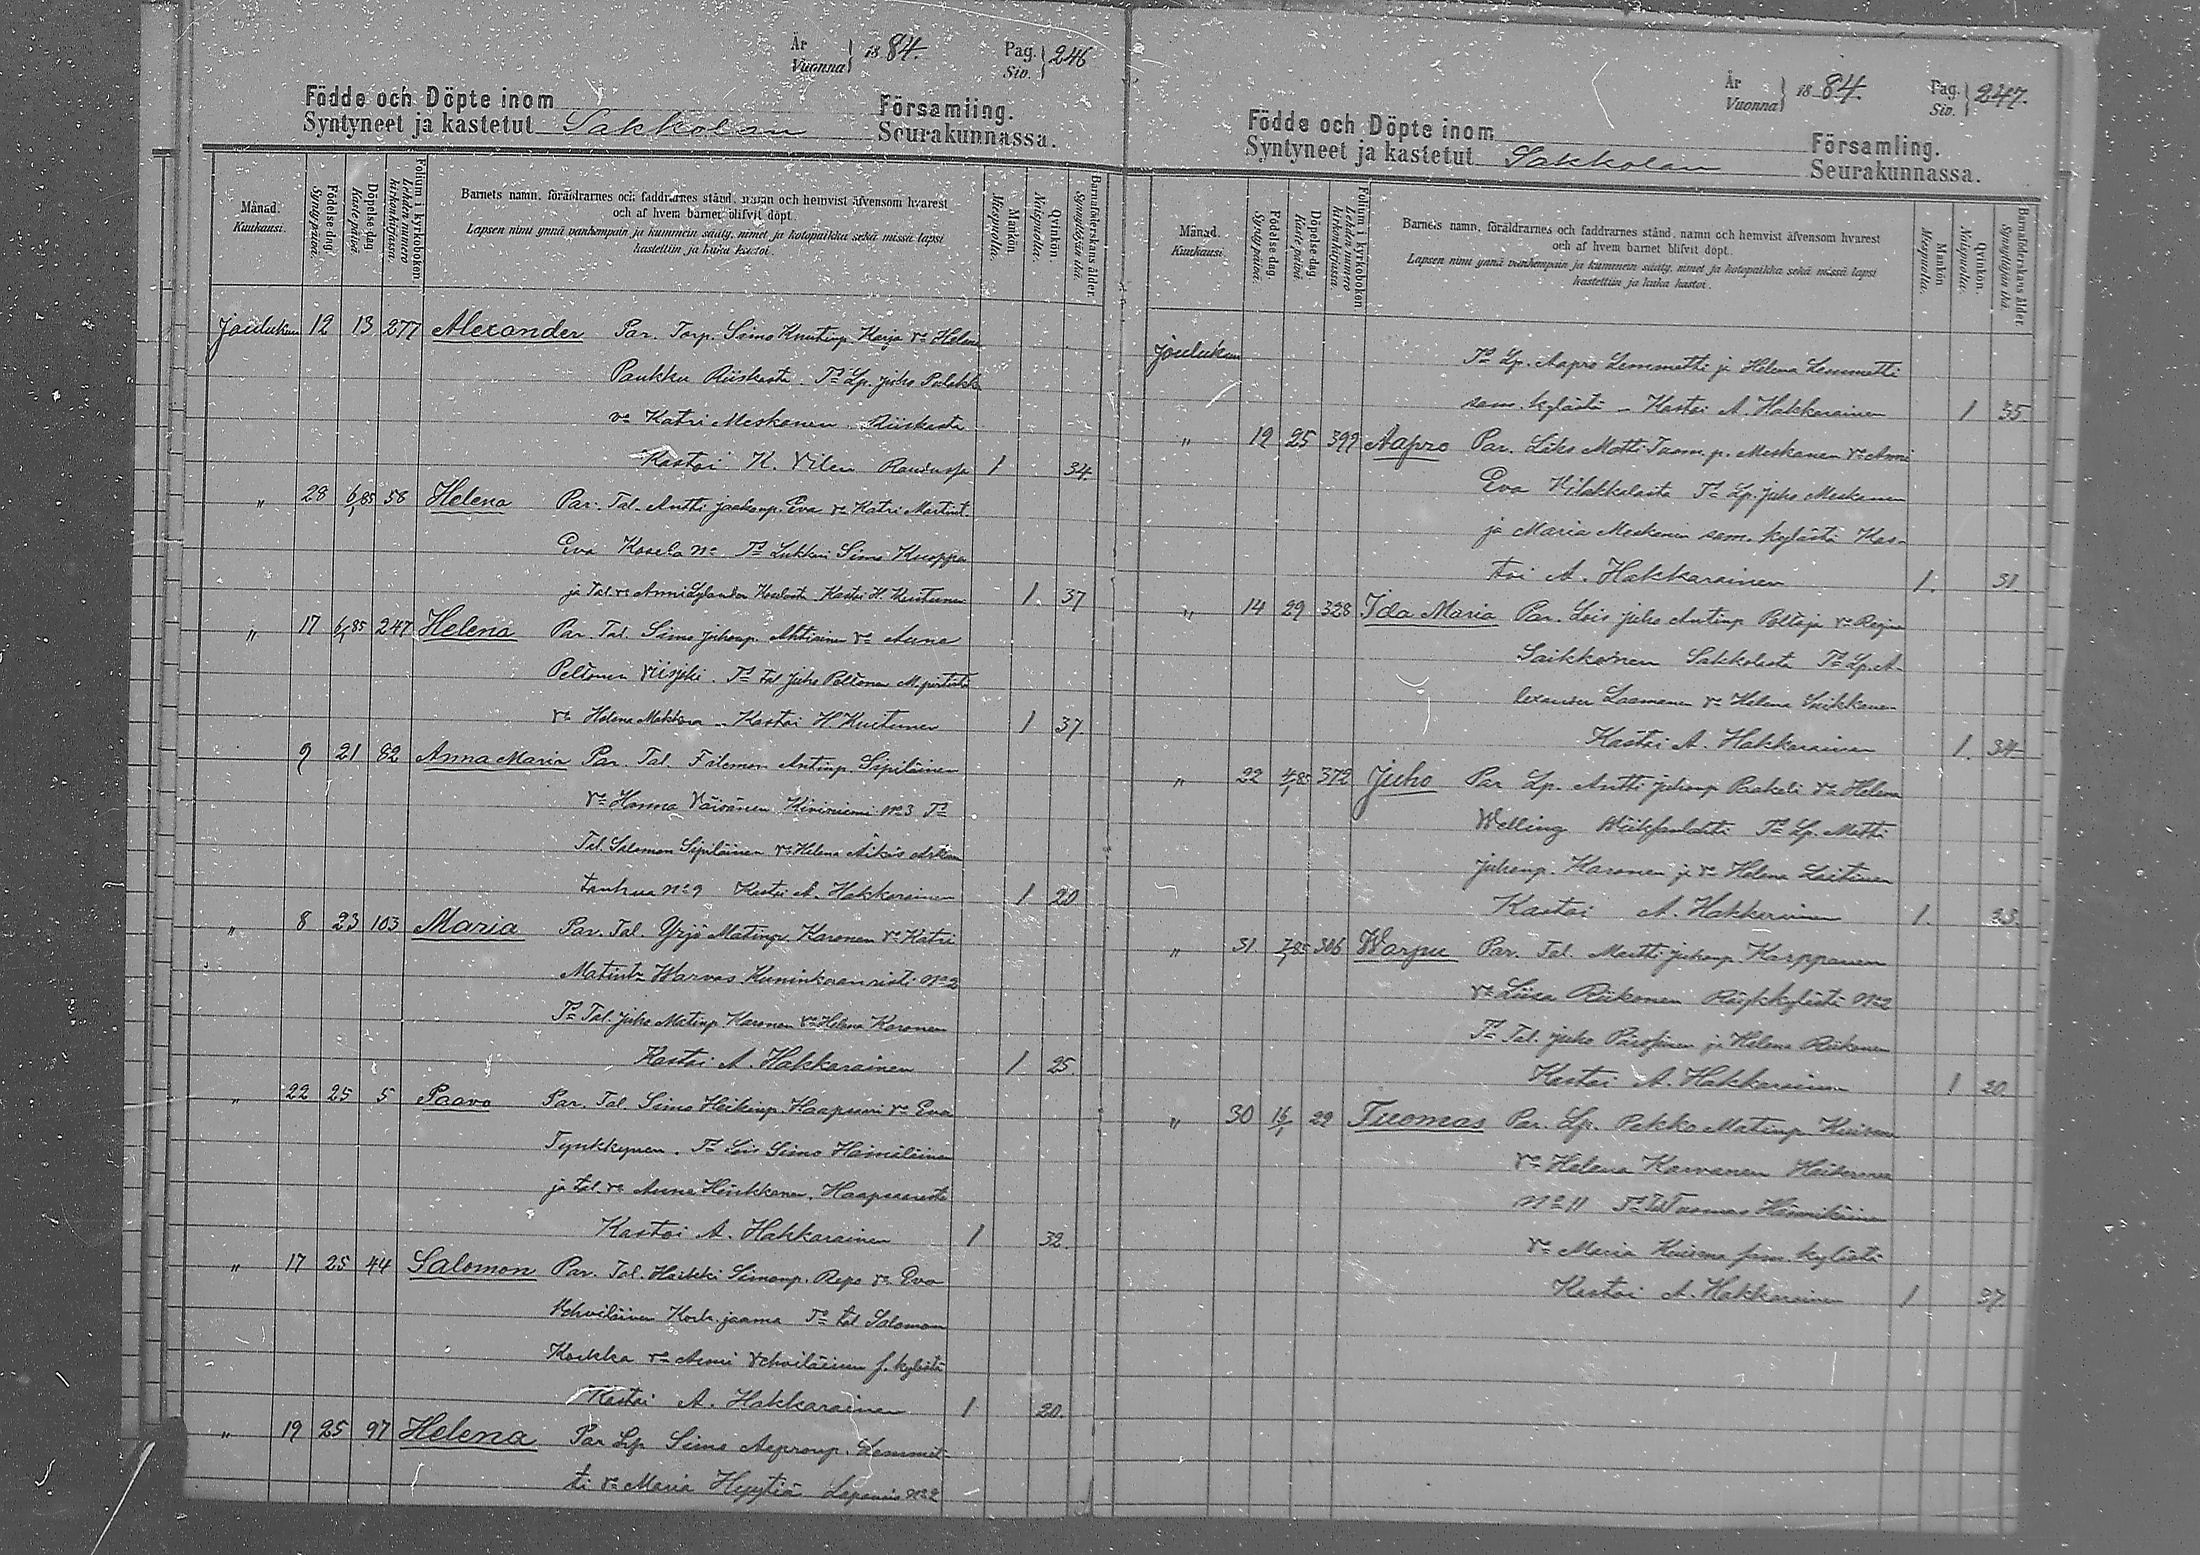 År
Vuonna } 1884.
Pag.
Siv. } 246
Födde och Döpte inom Församling.
Syntyneet ja kastetut Sakkolan Seurakunnassa.
Månad.
Kuukausi.
Födelse dag.
Syntypäivä.
Döpelse dag
Kaste päivä.
Folium i kyrkoboken.
Lehden numero kirkonkirjassa.
Barnets namn, föräldrarnes och faddrarnes stånd, namn och hemvist äfvensom hvarest
och af hvem barnet blifvit döpt.
Lapsen nimi ynnä vanhempain ja kummein sääty, nimet ja kotopaikka sekä missä lapsi
kastettiin ja kuka kastoi.
Mankön
Miespuolia.
Qvinkön.
Naispuolia.
Barnaföderskans ålder.
Synnyttäjän ikä.
Joulukuu 12 13 277 Alexander Par. Torp. Simo Knutinp. Karja vo Helena
Paukku Riiskasta. To Lp. Juho Pulakka
vo Katri Meskanen Riiskasta
Kastoi K. Vilen Raudussa 1 34.
" 28 6/1 85 58 Helena Par. Tal. Antti Jaakonp. Eva vo Katri Martint.
Eva Kosela No To Lukkari Simo Kuoppa
ja Tal. vo Anni Kaselasta Kastoi H. Kuutunen 1. 37
" 17 6/1 85 247 Helena Par. Tal. Simo Juhonp. Ahtiainen vo Anne
Peltonen Viisjoki. To Tal Juho Peltonen
vo Helena Kastoi H Kuutunen 1 37.
9 21 82 Anna Maria Par. Tal. Filemon Antinp. Sipiläinen
vo Hanna Väivänen Kiviniemi No 3 To
Tal. Salomon Sipiläinen vo Helena Äikäs
tanhua No 9 Kastoi A. Hakkarainen 1 20
" 8 23 103 Maria Par. Tal Yrjö Matinp. Karonen vo Katri
Matint. Warvas Kuninkaanristi No 2
To Tal. Juho Matinp Karonen vo Helena Karonen
Kastoi A. Hakkarainen 1 25.
" 22 25 5 Paavo Par. Tal. Simo Heikinp. Haapsaari vo Eva
Tynkkynen. To Lois Simo Hämäläinen
ja tal. vo Anne Hinkkanen, Haapsaaresta
Kastoi A. Hakkarainen 1 32.
" 17 25 44 Salomon Par. Tal. Heikki Simonp. Repo vo Eva
Vehviläinen jaama To tal Salomon
Korkka vo Anni Vehviläinen s. kylästä
Kastoi A. Hakkarainen 1 20.
" 19 25 97 Helena Par Lp Simo Aapronp. Lemmet-
ti vo Maria Hyytiä Lapanais No 2
År
Vuonna } 1884.
Pag.
Siv. } 247.
Födde och Döpte inom Församling.
Syntyneet ja kastetut Sakkolan Seurakunnassa.
Månad.
Kuukausi.
Födelse dag.
Syntypäivä.
Döpelse dag
Kaste päivä.
Folium i kyrkoboken.
Lehden numero kirkonkirjassa.
Barnets namn, föräldrarnes och faddrarnes stånd, namn och hemvist äfvensom hvarest
och af hvem barnet blifvit döpt.
Lapsen nimi ynnä vanhempain ja kummein sääty, nimet ja kotopaikka sekä missä lapsi
kastettiin ja kuka kastoi.
Mankön
Miespuolia.
Qvinkön.
Naispuolia.
Barnaföderskans ålder.
Synnyttäjän ikä.
Jouluk To Lp. Aapro Lemmetti ja Helena Lemmetti
sam. kylästä – Kastoi A. Hakkarainen 1 35.
" 19 25 399 Aapro Par. Matti Tuom.p. Meskanen vo Anni
Eva Vilakkalasta To Lp. Juho Meskanen
ja Maria Meskanen sam. kylästä Kas-
toi A. Hakkarainen 1. 31.
" 14 29 328 Ida Maria Par. Lois Juho Antinp Peltoja vo Regina
Saikkonen Sakkolasta To Lp. A-
lexander Laamanen vo Helena Saikkonen
Kastoi A. Hakkarainen 1. 34.
" 22 4/1 85 372 Juho Par Lp. Antti Juhonp Paakeli vo Helena
Welling To Lp. Matti
Juhonp. Karonen ja vo Helena Laitinen
Kastoi A. Hakkarainen 1. 23.
" 31. 7/1 85 306 Warpu Par. Tal. Martti Juhonp. Karppanen
vo Liisa Riikonen Röykkylästä No 2
To Tal. Juho ja Helena Riikonen
Kastoi A. Hakkarainen 1 20.
" 30 16/1 22 Tuomas Par. Lp. Pekko Matinp. Kuisma
vo Helena Karvanen Haitermaa
No 11 To Tal Tuomas Hännikäinen
vo Maria Kuisma sam. kylästä
Kastoi A. Hakkarainen 1 37.